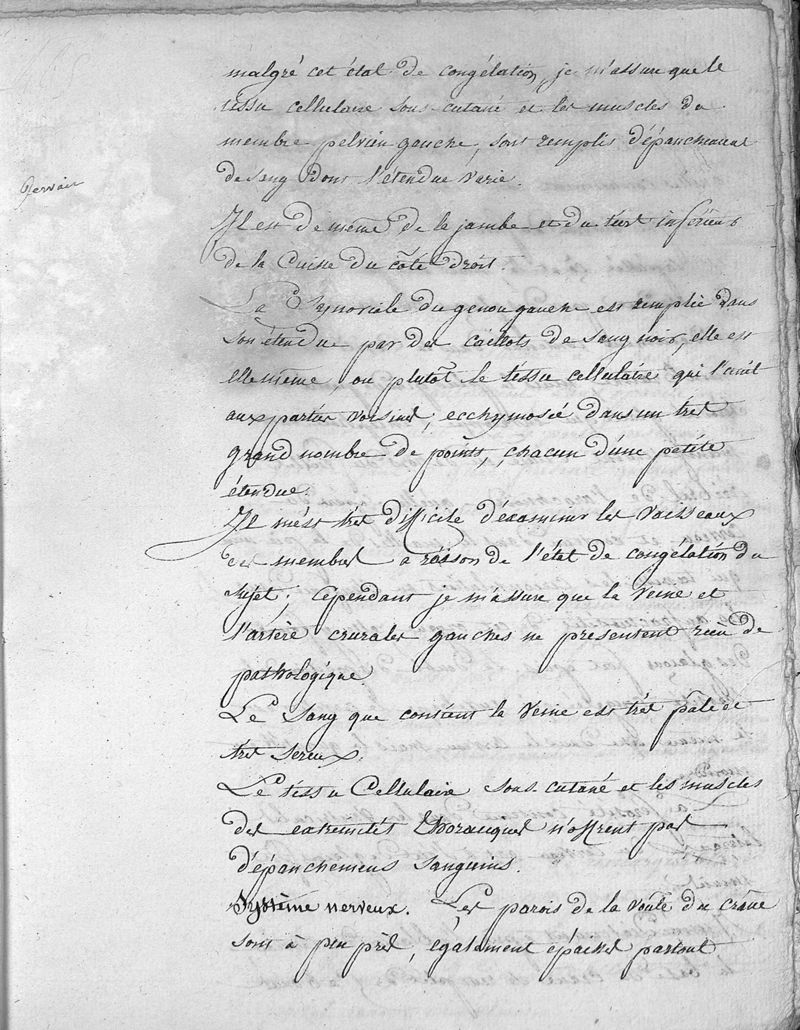 malgré cet état de congélation, je m'assure que le
tissu cellulaire sous cutané et les muscles du
membre pelvien gauche, sont remplis d'épanchemens
de sang dont l'étendue varie.
Gervais
Il est de même de la jambe et du tiers inférieur
de la Cuisse du côté droit.
La Synoviale du genou gauche est remplie dans
son étendue par des caillots de sang noir, elle est
elle même, ou plutôt le tissu cellulaire qui l'unit
aux parties voisines, ecchymosée dans un très
grand nombre de points, chacun d'une petite
étendue.
Il m'est très difficile d'examiner les vaisseaux
des membres a raison de l'état de congélation du
sujet; cependant je m'assure que la veine et
l'artère crurales gauches ne presentent rien de
pathologique.
Le Sang que contient la veine est très pâle et
très sereux.
Le tissu Cellulaire sous cutané et les muscles
des extremités thoraciques n'offrent pas
d'épanchemens sanguins.
Système nerveux. Les parois de la voûte du crâne
sont à peu près, également épaisses partout